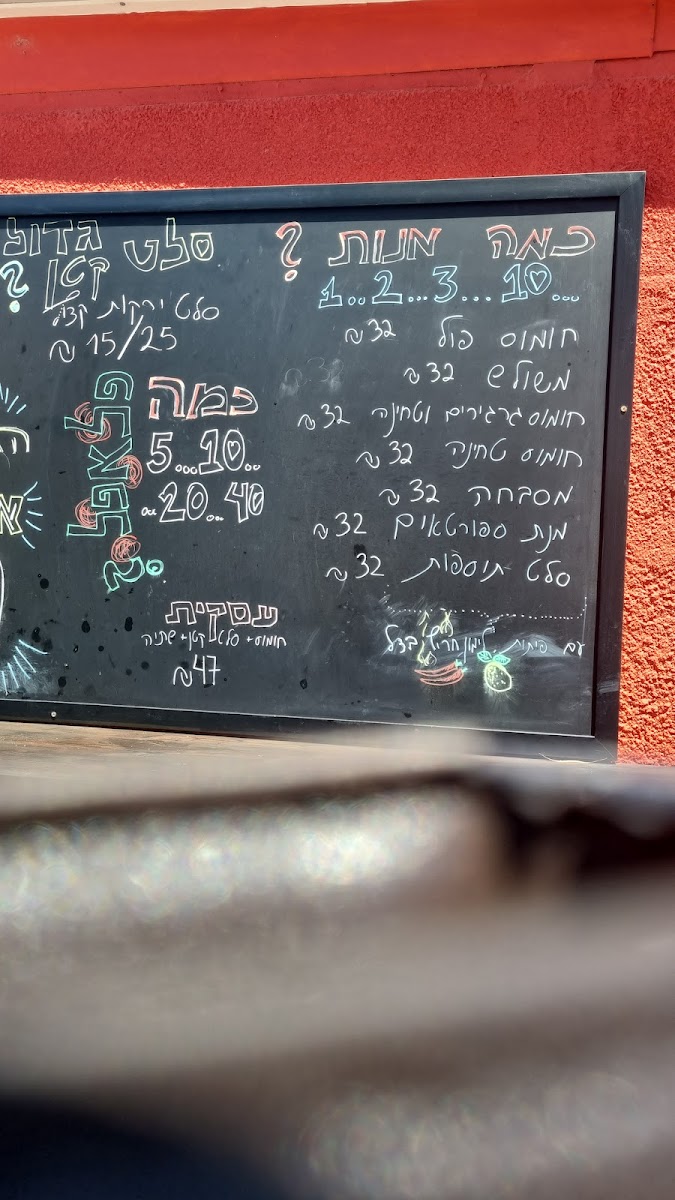 כמה מנות ?
1..2...3...10...
חומוס פול 32 ₪
משולש 32 ₪
חומוס גרגירים וטחינה 32 ₪
חומוס טחינה 32 ₪
מסבחה 32 ₪
מנת ספורטאים 32 ₪
סלט תוספות 32 ₪
עם פיתות, לימון חריף בצל
סלט גדול
קטן ?
סלט ירקות קצוץ
15/25 ₪
כמה
פלאפל
5...10..
..20...40
?
עסקית
חומוס + סלט קטן + שתיה
47 ₪